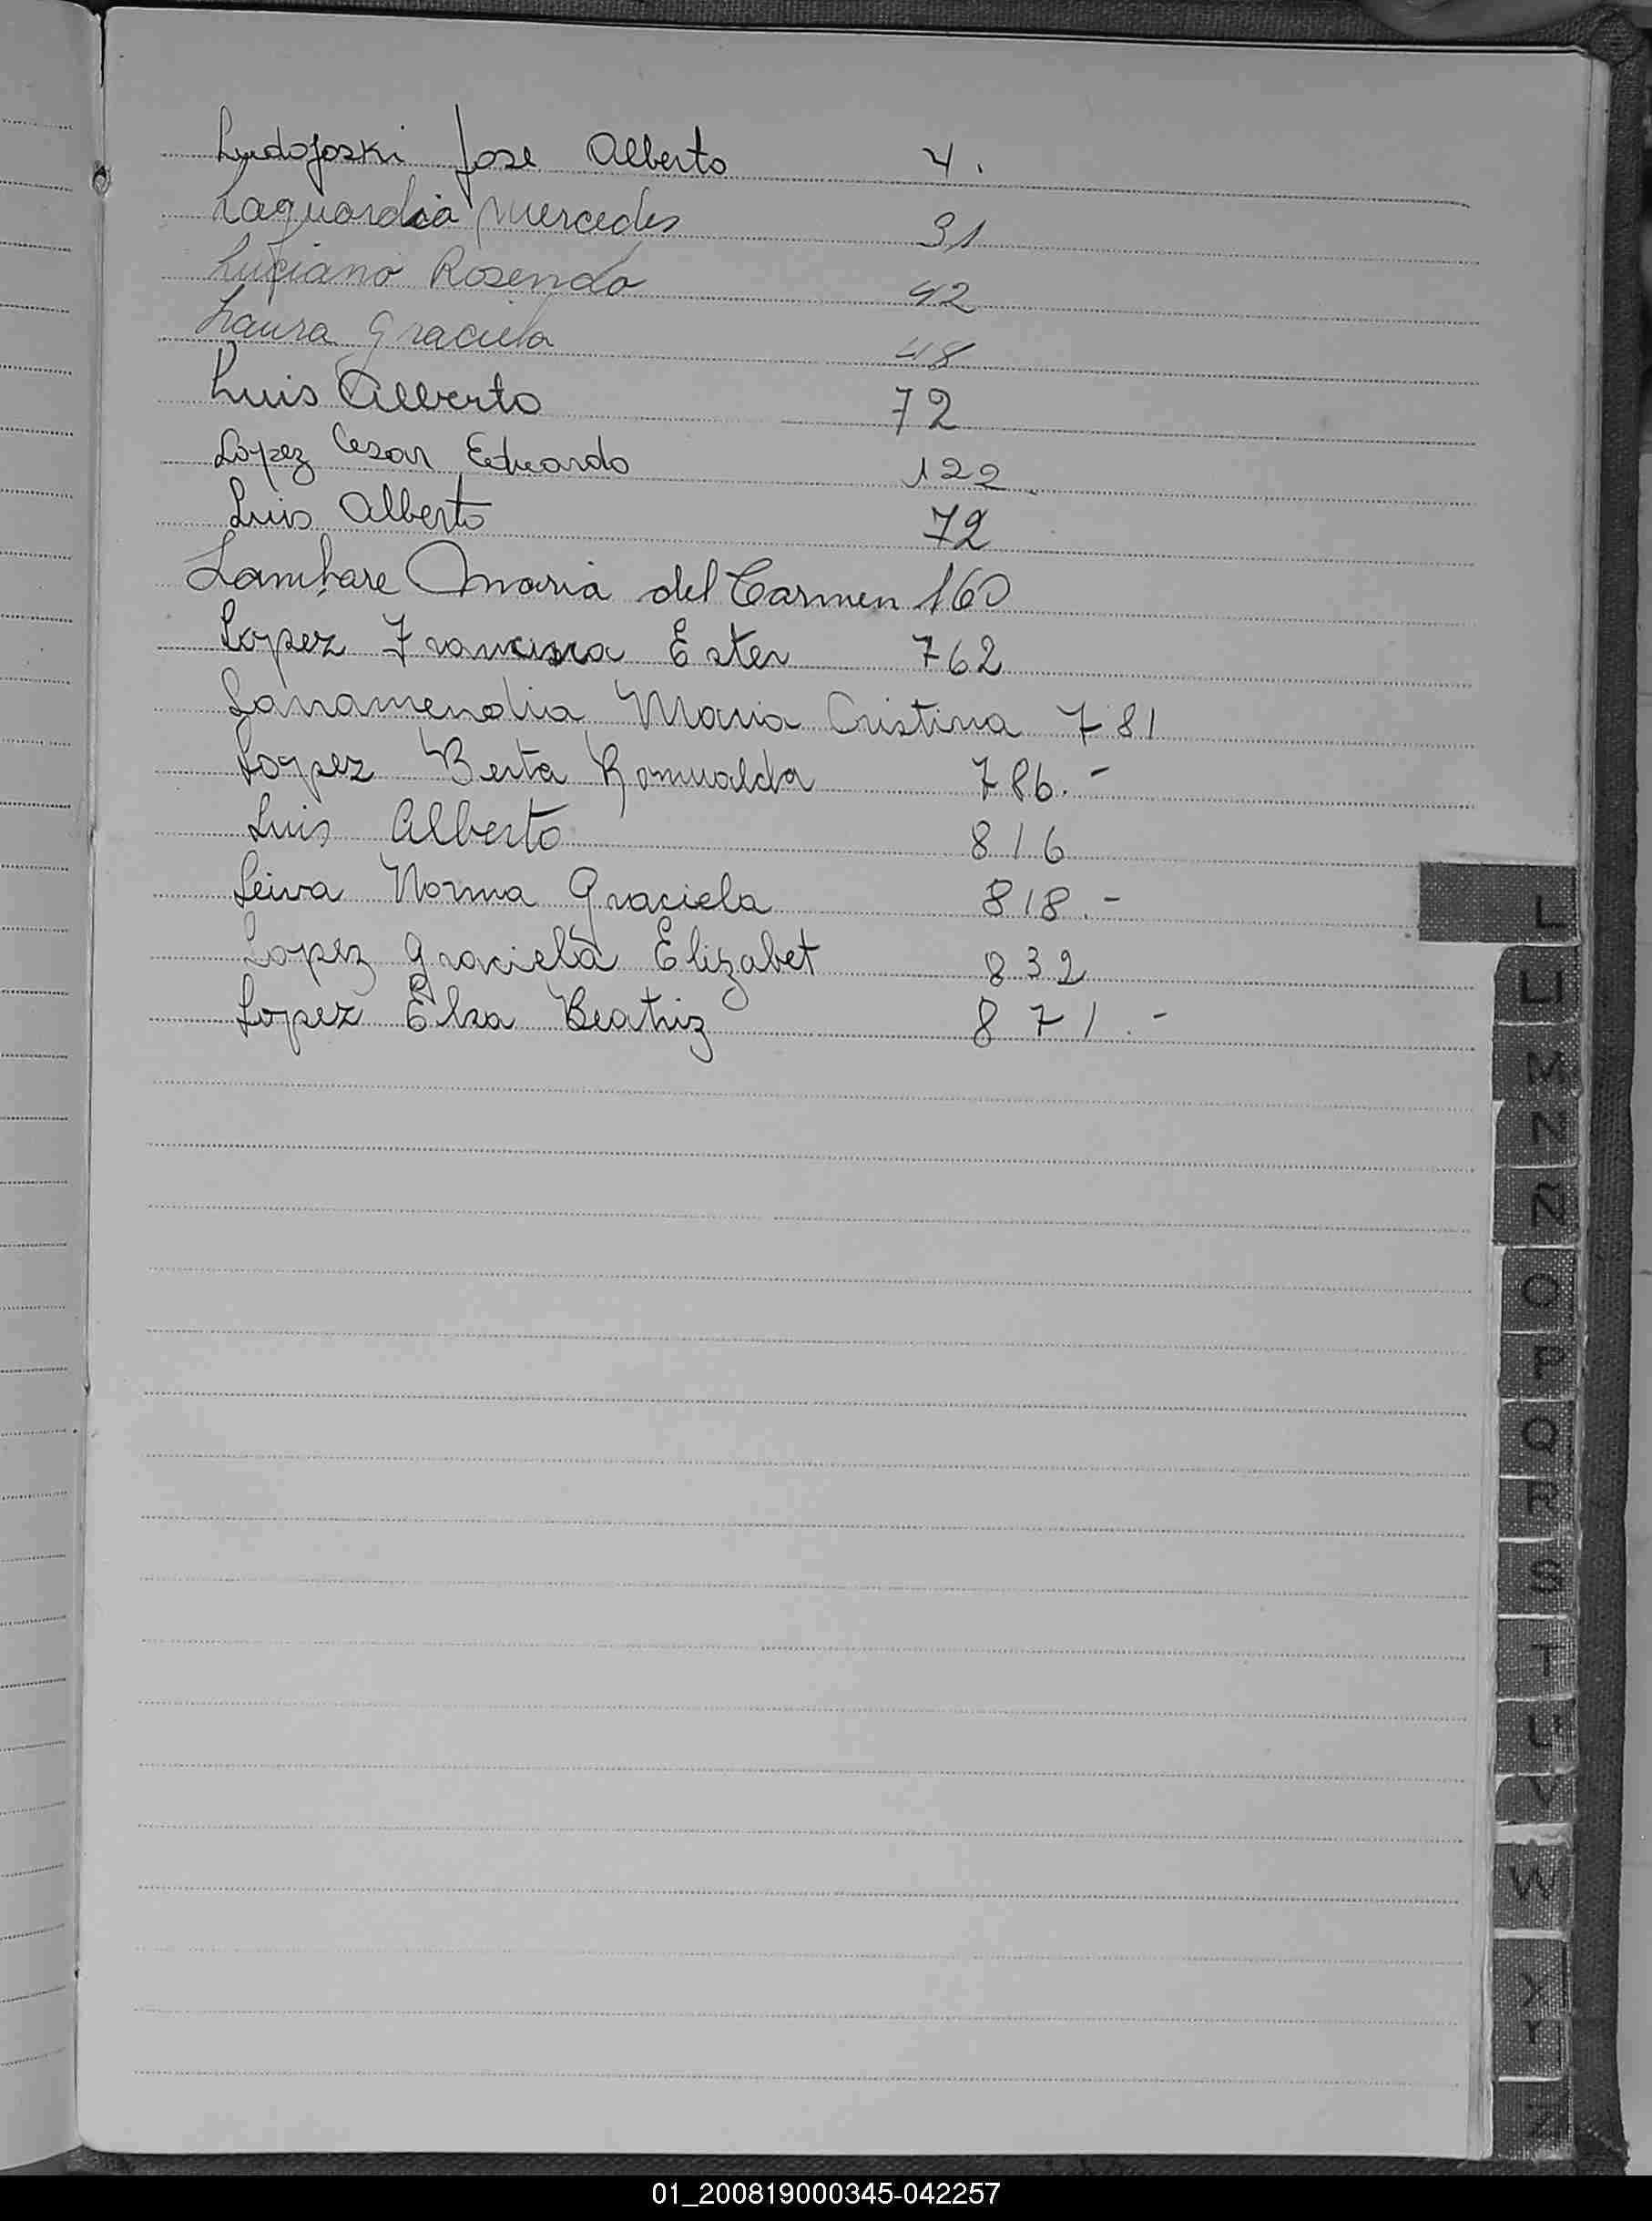 Ludojoski Jose Alberto 4.
Laguardia Mercedes 31
Luciano Rosendo 42
Laura Graciela 48
Luis Alberto 72
Lopez Cesar Eduardo 122
Luis Alberto 72
Lambare Maria del Carmen 160
Lopez Francisca Ester 762
Larramendia Maria Cristina 781
Lopez Berta Romualda 786.-
Luis Alberto 816
Leiva Norma Graciela 818.-
Lopez Graciela Elizabet 832
Lopez Elsa Beatriz 871.-
L
LL
M
N
Ñ
O
P
Q
R
S
T
U
V
W
X
Y
Z
01_200819000345-042257